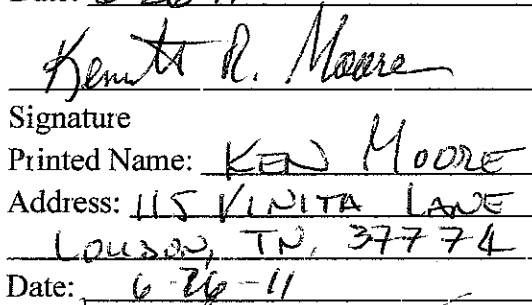 Kenneth R. Moore
Signature
Printed Name: KEN MOORE
Address: 115 VINITA LANE
LOUDON, TN, 37774
Date: 6-26-11